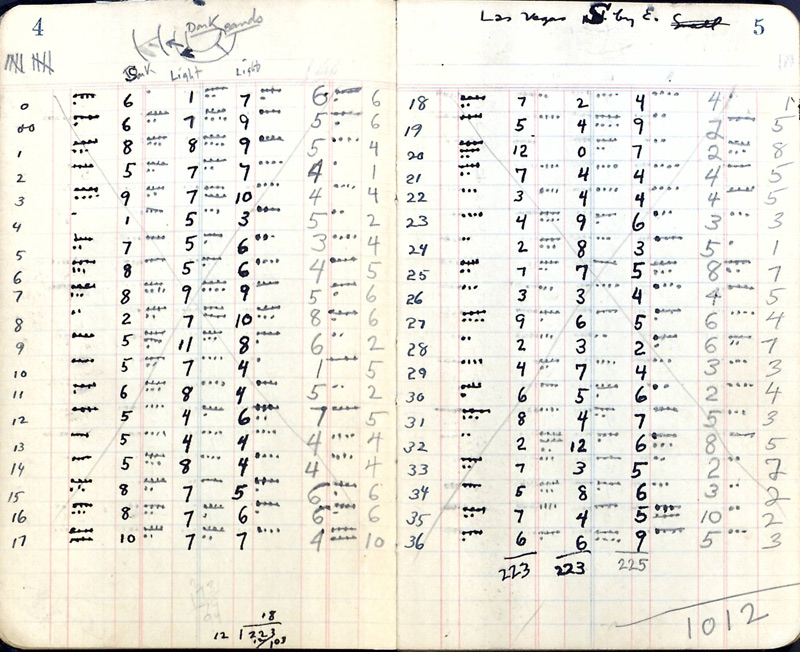 4
Dark
Dark Light Light
0 6 1 7 6 6
00 6 7 9 5 6
1 8 8 9 5 4
2 5 7 7 4 1
3 9 7 10 4 4
4 1 5 3 5 2
5 7 5 6 3 4
6 8 5 6 4 5
7 8 9 9 5 6
8 2 7 10 8 6
9 5 11 8 6 2
10 5 7 4 1 5
11 6 8 4 5 2
12 5 4 6 7 5
13 5 4 4 4 4
14 5 8 4 4 4
15 8 7 5 6 6
16 8 7 6 6 6
17 10 7 7 4 10
18
12 223
Las Vegas by E. 5
18 7 2 4 4
19 5 4 9 7 5
20 12 0 7 2 8
21 7 4 4 4 5
22 3 4 4 4 5
23 4 9 6 3 3
24 2 8 3 5 1
25 7 7 5 8 7
26 3 3 4 4 5
27 9 6 5 6 4
28 2 3 2 6 7
29 4 7 4 3 3
30 6 5 6 2 4
31 8 4 7 5 3
32 2 12 6 8 5
33 7 3 5 2 2
34 5 8 6 3 2
35 7 4 5 10 2
36 6 6 9 5 3
223 223 225
1012